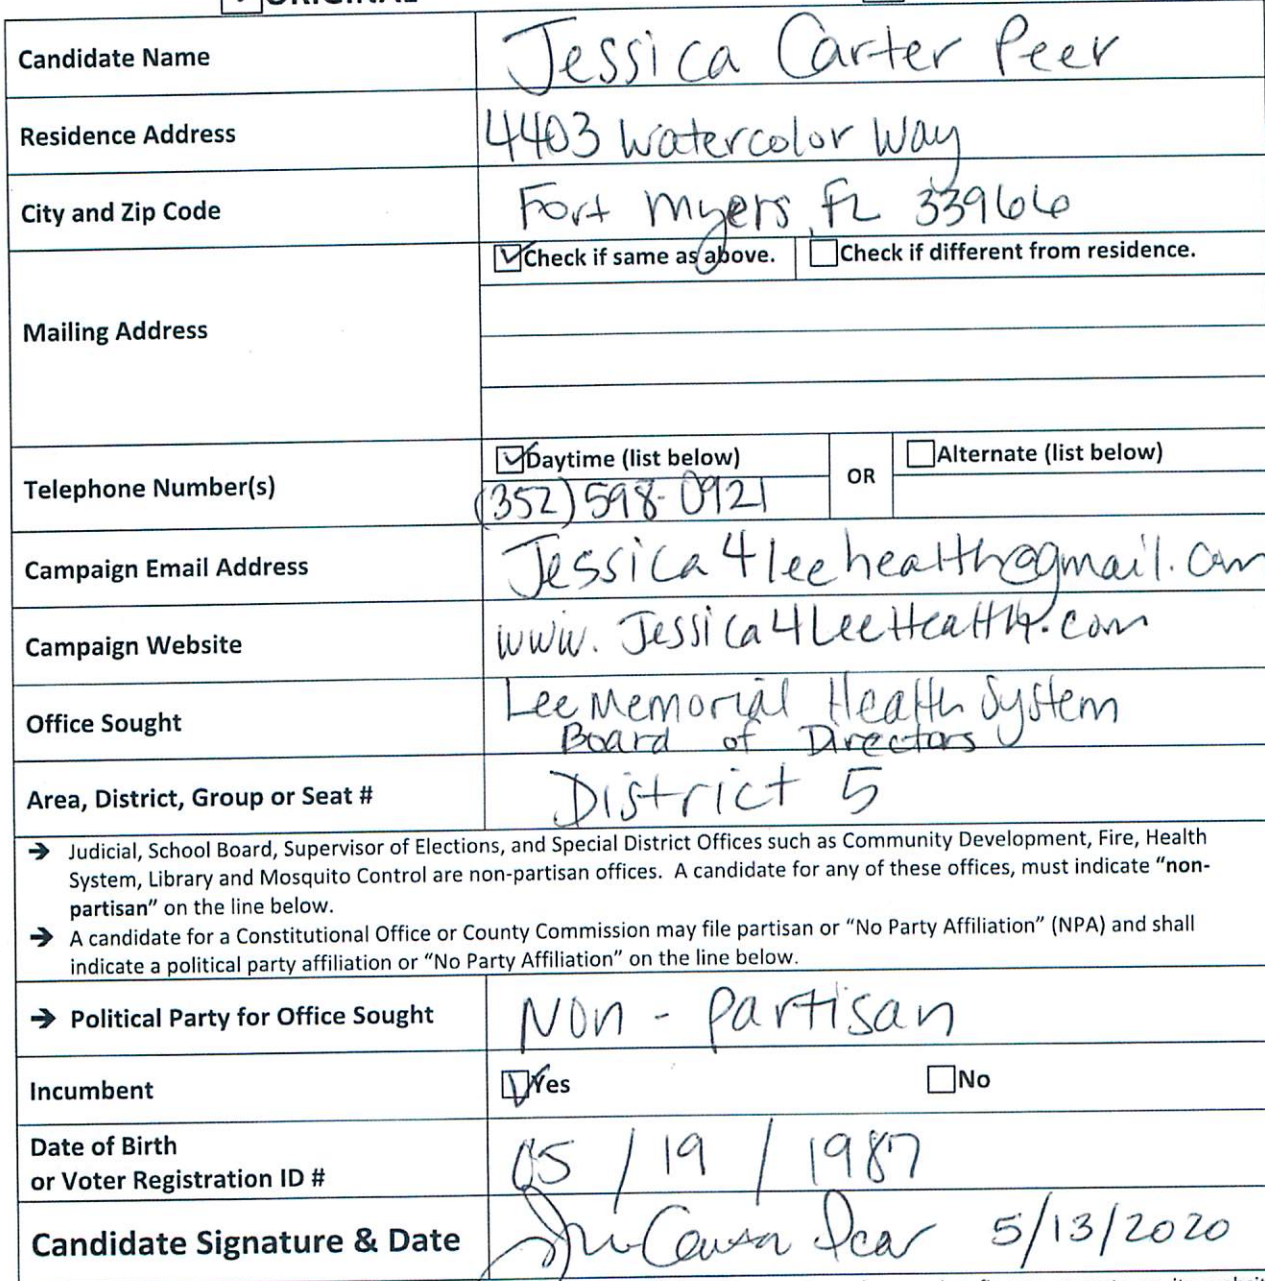 ORIGINAL
Candidate Name Jessica Carter Peer
Residence Address 4403 Watercolor Way
City and Zip Code Fort Myers, FL 33966
Check if same as above. Check if different from residence.
Mailing Address
Daytime (list below) OR Alternate (list below)
Telephone Number(s) (352) 598-0921
Campaign Email Address Jessica4leehealth@gmail.com
Campaign Website www.Jessica4LeeHealth.com
Office Sought Lee Memorial Health System
Board of Directors
Area, District, Group or Seat # District 5
→ Judicial, School Board, Supervisor of Elections, and Special District Offices such as Community Development, Fire, Health
System, Library and Mosquito Control are non-partisan offices. A candidate for any of these offices, must indicate "non-
partisan" on the line below.
→ A candidate for a Constitutional Office or County Commission may file partisan or "No Party Affiliation" (NPA) and shall
indicate a political party affiliation or "No Party Affiliation" on the line below.
→ Political Party for Office Sought Non - Partisan
Incumbent Yes No
Date of Birth
or Voter Registration ID # 05 / 19 / 1987
Candidate Signature & Date 5/13/2020